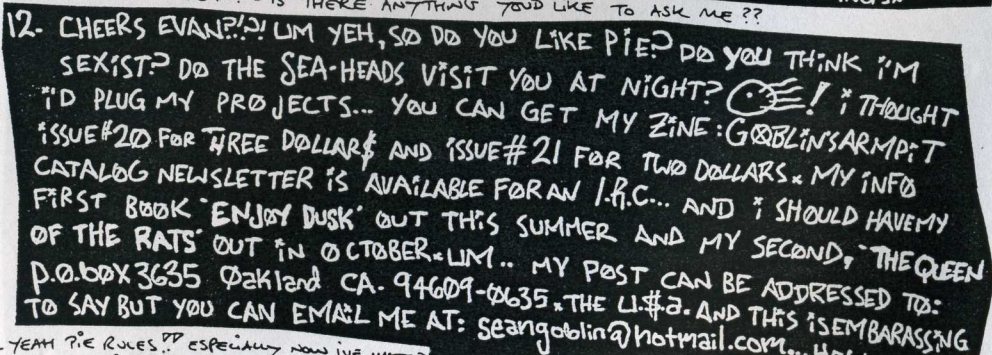 IS THERE ANYTHING YOU'D LIKE TO ASK ME??
12. CHEERS EVAN?!?! UM YEH, SO DO YOU LIKE PIE? DO YOU THINK I'M
SEXIST? DO THE SEA-HEADS VISIT YOU AT NIGHT? ! I THOUGHT
I'D PLUG MY PROJECTS... YOU CAN GET MY ZINE: GOBLINSARMPIT
ISSUE #20 FOR THREE DOLLAR$ AND ISSUE #21 FOR TWO DOLLARS. MY INFO
CATALOG NEWSLETTER IS AVAILABLE FOR AN I.R.C... AND I SHOULD HAVE MY
FIRST BOOK 'ENJOY DUSK' OUT THIS SUMMER AND MY SECOND, 'THE QUEEN
OF THE RATS' OUT IN OCTOBER. UM.. MY POST CAN BE ADDRESSED TO:
P.O.BOX 3635 Oakland CA. 94609-0635. THE U.$.a. AND THIS IS EMBARASSING
TO SAY BUT YOU CAN EMAIL ME AT: seangoblin@hotmail.com...
YEAH PIE RULES!! ESPECIALLY NOW IVE